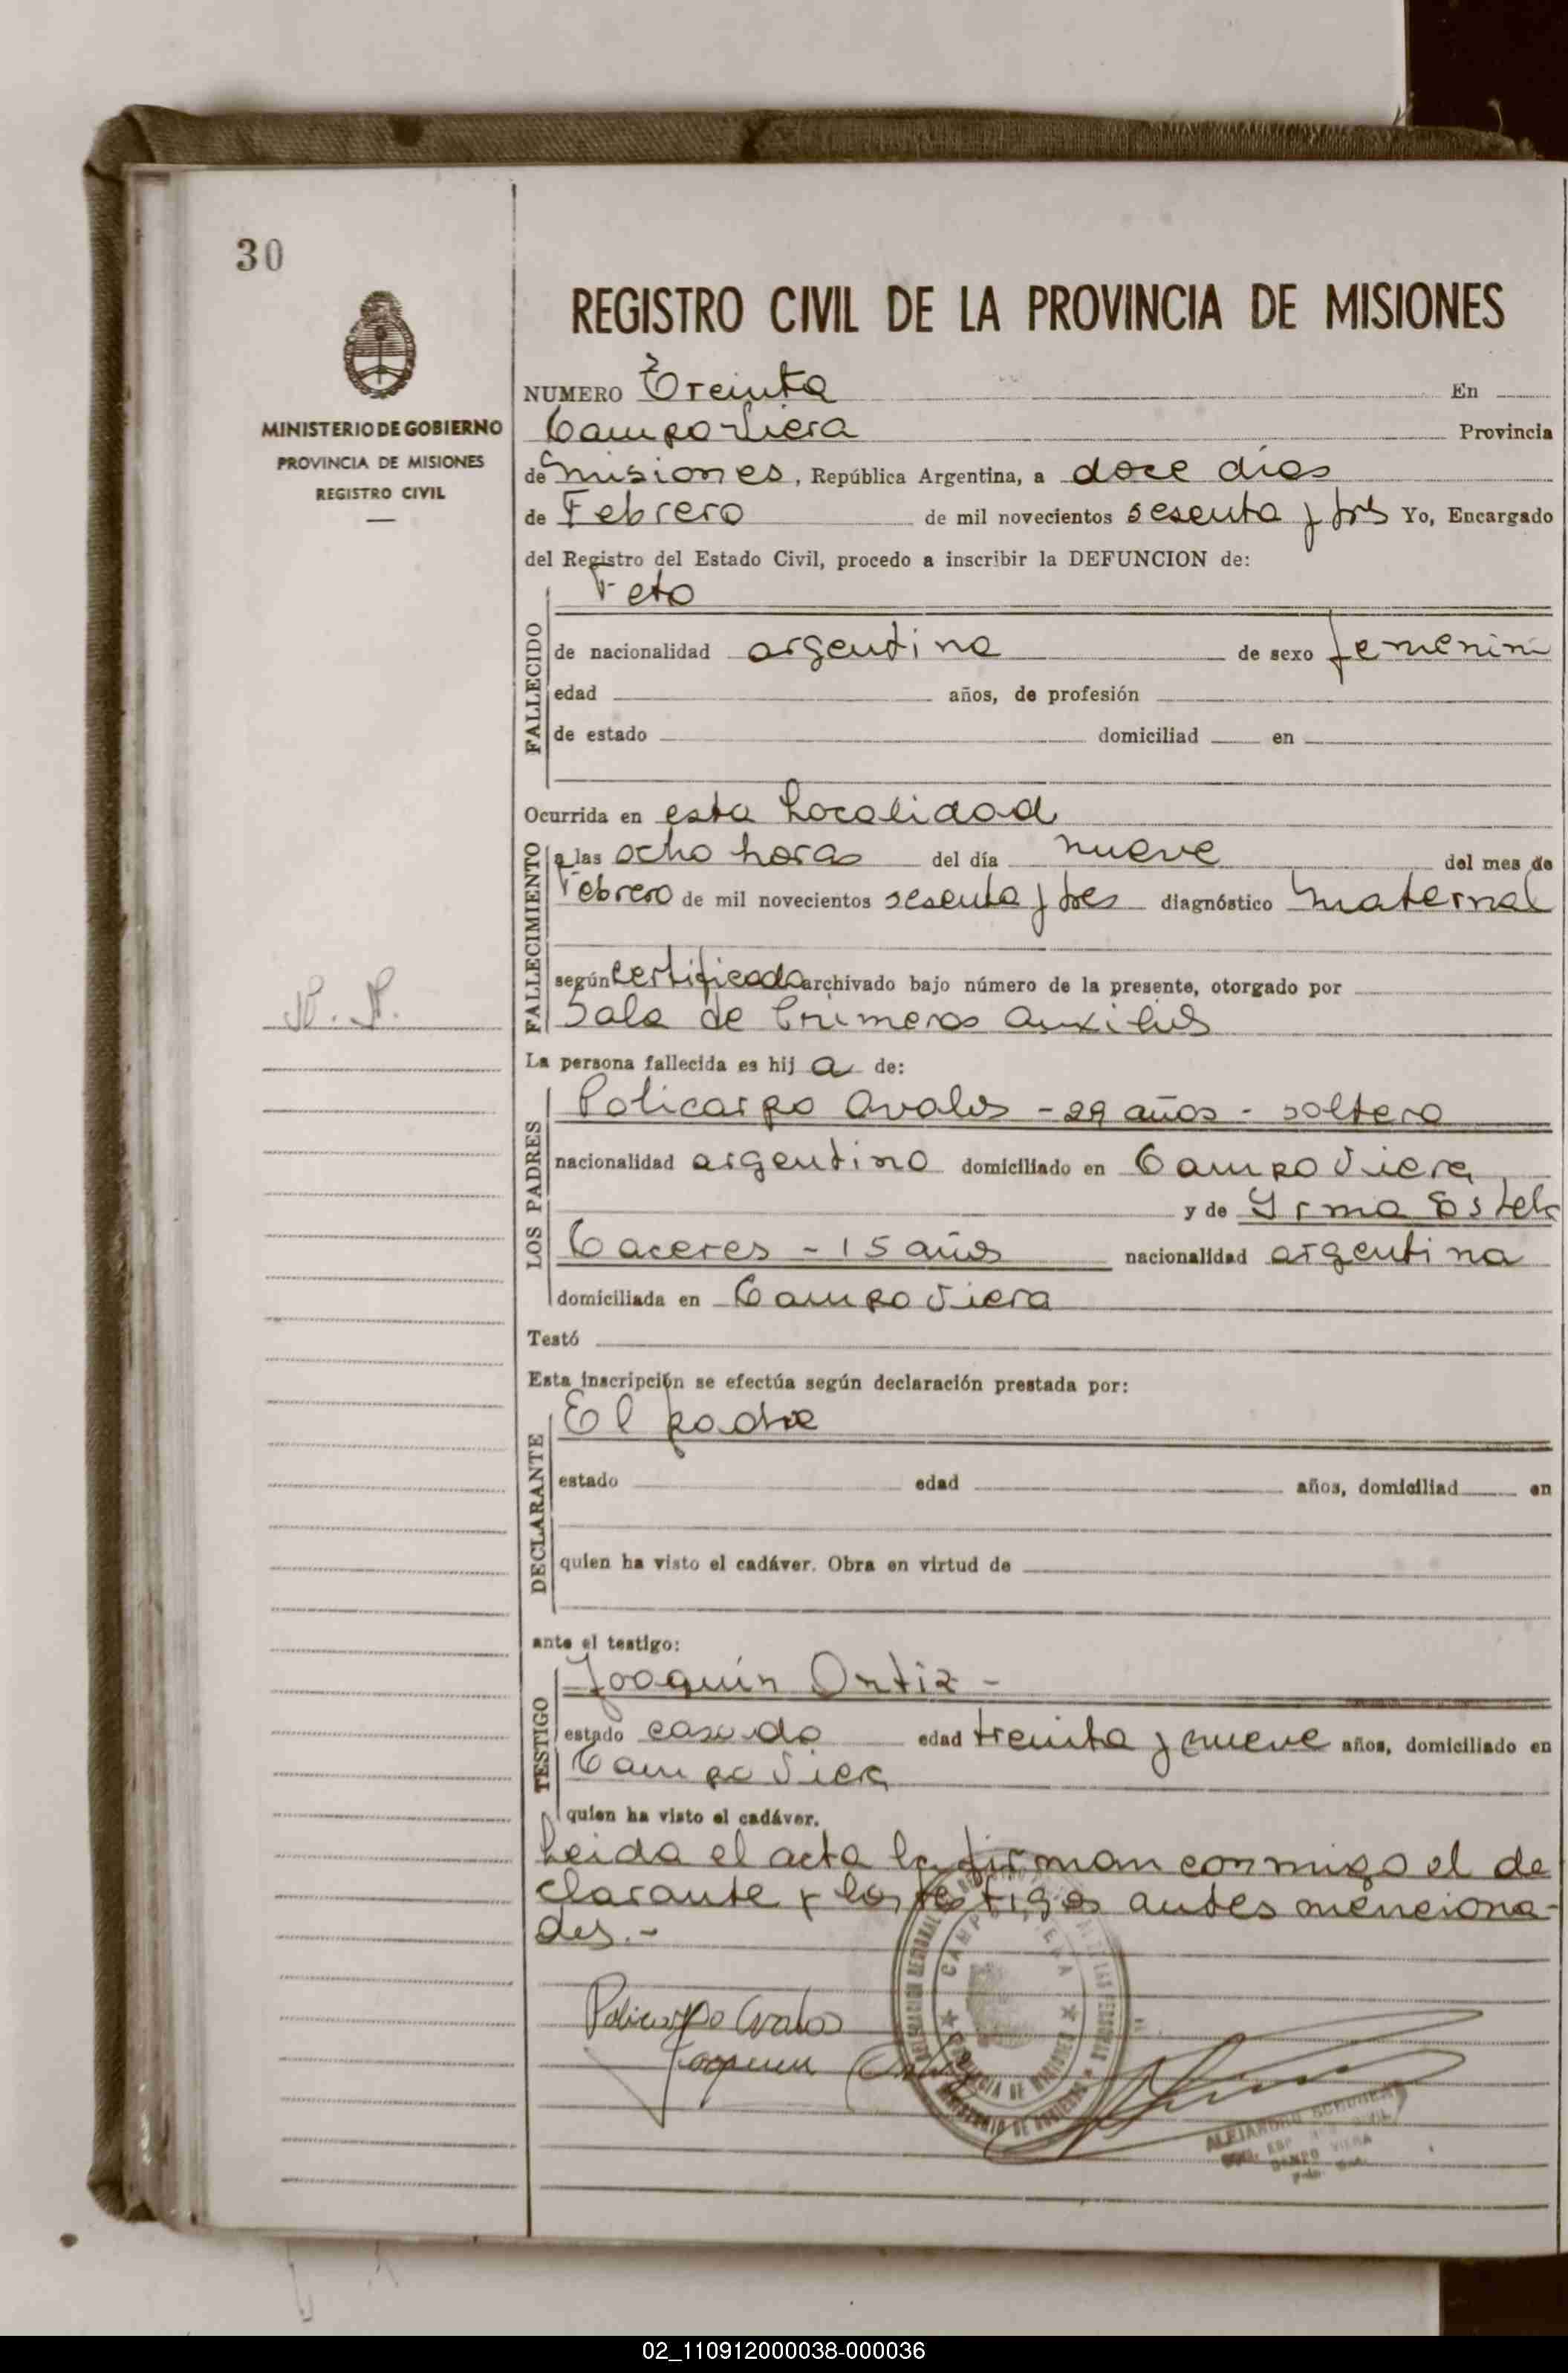 30
MINISTERIO DE GOBIERNO
PROVINCIA DE MISIONES
REGISTRO CIVIL
REGISTRO CIVIL DE LA PROVINCIA DE MISIONES
NUMERO Treinta En
Campo Viera Provincia
de misiones, República Argentina, a doce días
de Febrero de mil novecientos sesenta y tres Yo, Encargado
del Registro del Estado Civil, procedo a inscribir la DEFUNCION de:
Feto
FALLECIDO
de nacionalidad argentina de sexo femenin
edad años, de profesión
de estado domiciliad en
Ocurrida en esta Localidad
FALLECIMIENTO
a las ocho horas del día nueve del mes de
Febrero de mil novecientos sesenta y tres diagnóstico maternal
según certificado archivado bajo número de la presente, otorgado por
Sala de Primeros Auxilios
La persona fallecida es hij a de:
LOS PADRES
Policarpo Avalos - 29 años - soltero
nacionalidad argentino domiciliado en Campo Viera
y de Yrma Estela
Caceres - 15 años nacionalidad argentina
domiciliada en Campo Viera
Testó
Esta inscripción se efectúa según declaración prestada por:
DECLARANTE
El padre
estado edad años, domiciliad en
quien ha visto el cadáver. Obra en virtud de
ante el testigo:
TESTIGO
Joaquin Ortiz -
estado casado edad treinta y nueve años, domiciliado en
Campo Viera
quien ha visto el cadáver.
Leida el acta la firman conmigo el de
clarante y los testigos antes menciona-
dos.-
Policarpo Avalos
Joaquin Ortiz
CAMPO VIERA
PROVINCIA DE MISIONES
MINISTERIO DE GOBIERNO
ALEJANDRO
CAMPO VIERA
02_110912000038-000036